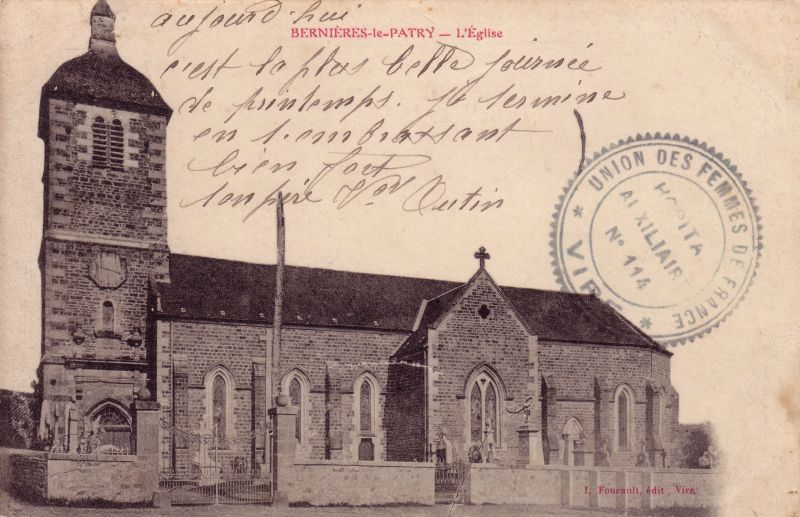 BERNIÈRES-le-PATRY — L'Église
aujourd'hui
c'est la plus belle journée
de printemps. je termine
en t'embrassant
bien fort
ton père Vor Outin
UNION DES FEMMES DE FRANCE
* VIRE *
HOPITA
AUXILIAIRE
N° 114
I. Foucault, édit, Vire